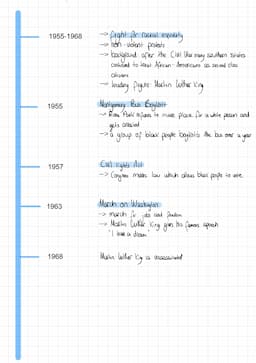 1955-1968
fight for racial equality
→ non-violent protests
→ background: after the Civil War many southern states
continued to treat African-Americans as second class
citizens
→ leading figure: Martin Luther King
1955
Montgomery Bus Boycott
→ Rosa Parks refuses to make place for a white person and
gets arrested
→ a group of black people boycotts the bus over a year
1957
Civil rights Act
→ Congress makes law which allows black people to vote
1963
March on Washington
→ march for jobs and freedom
→ Martin Luther King gives his famous speech
"I have a dream"
1968
Martin Luther King is assassinated